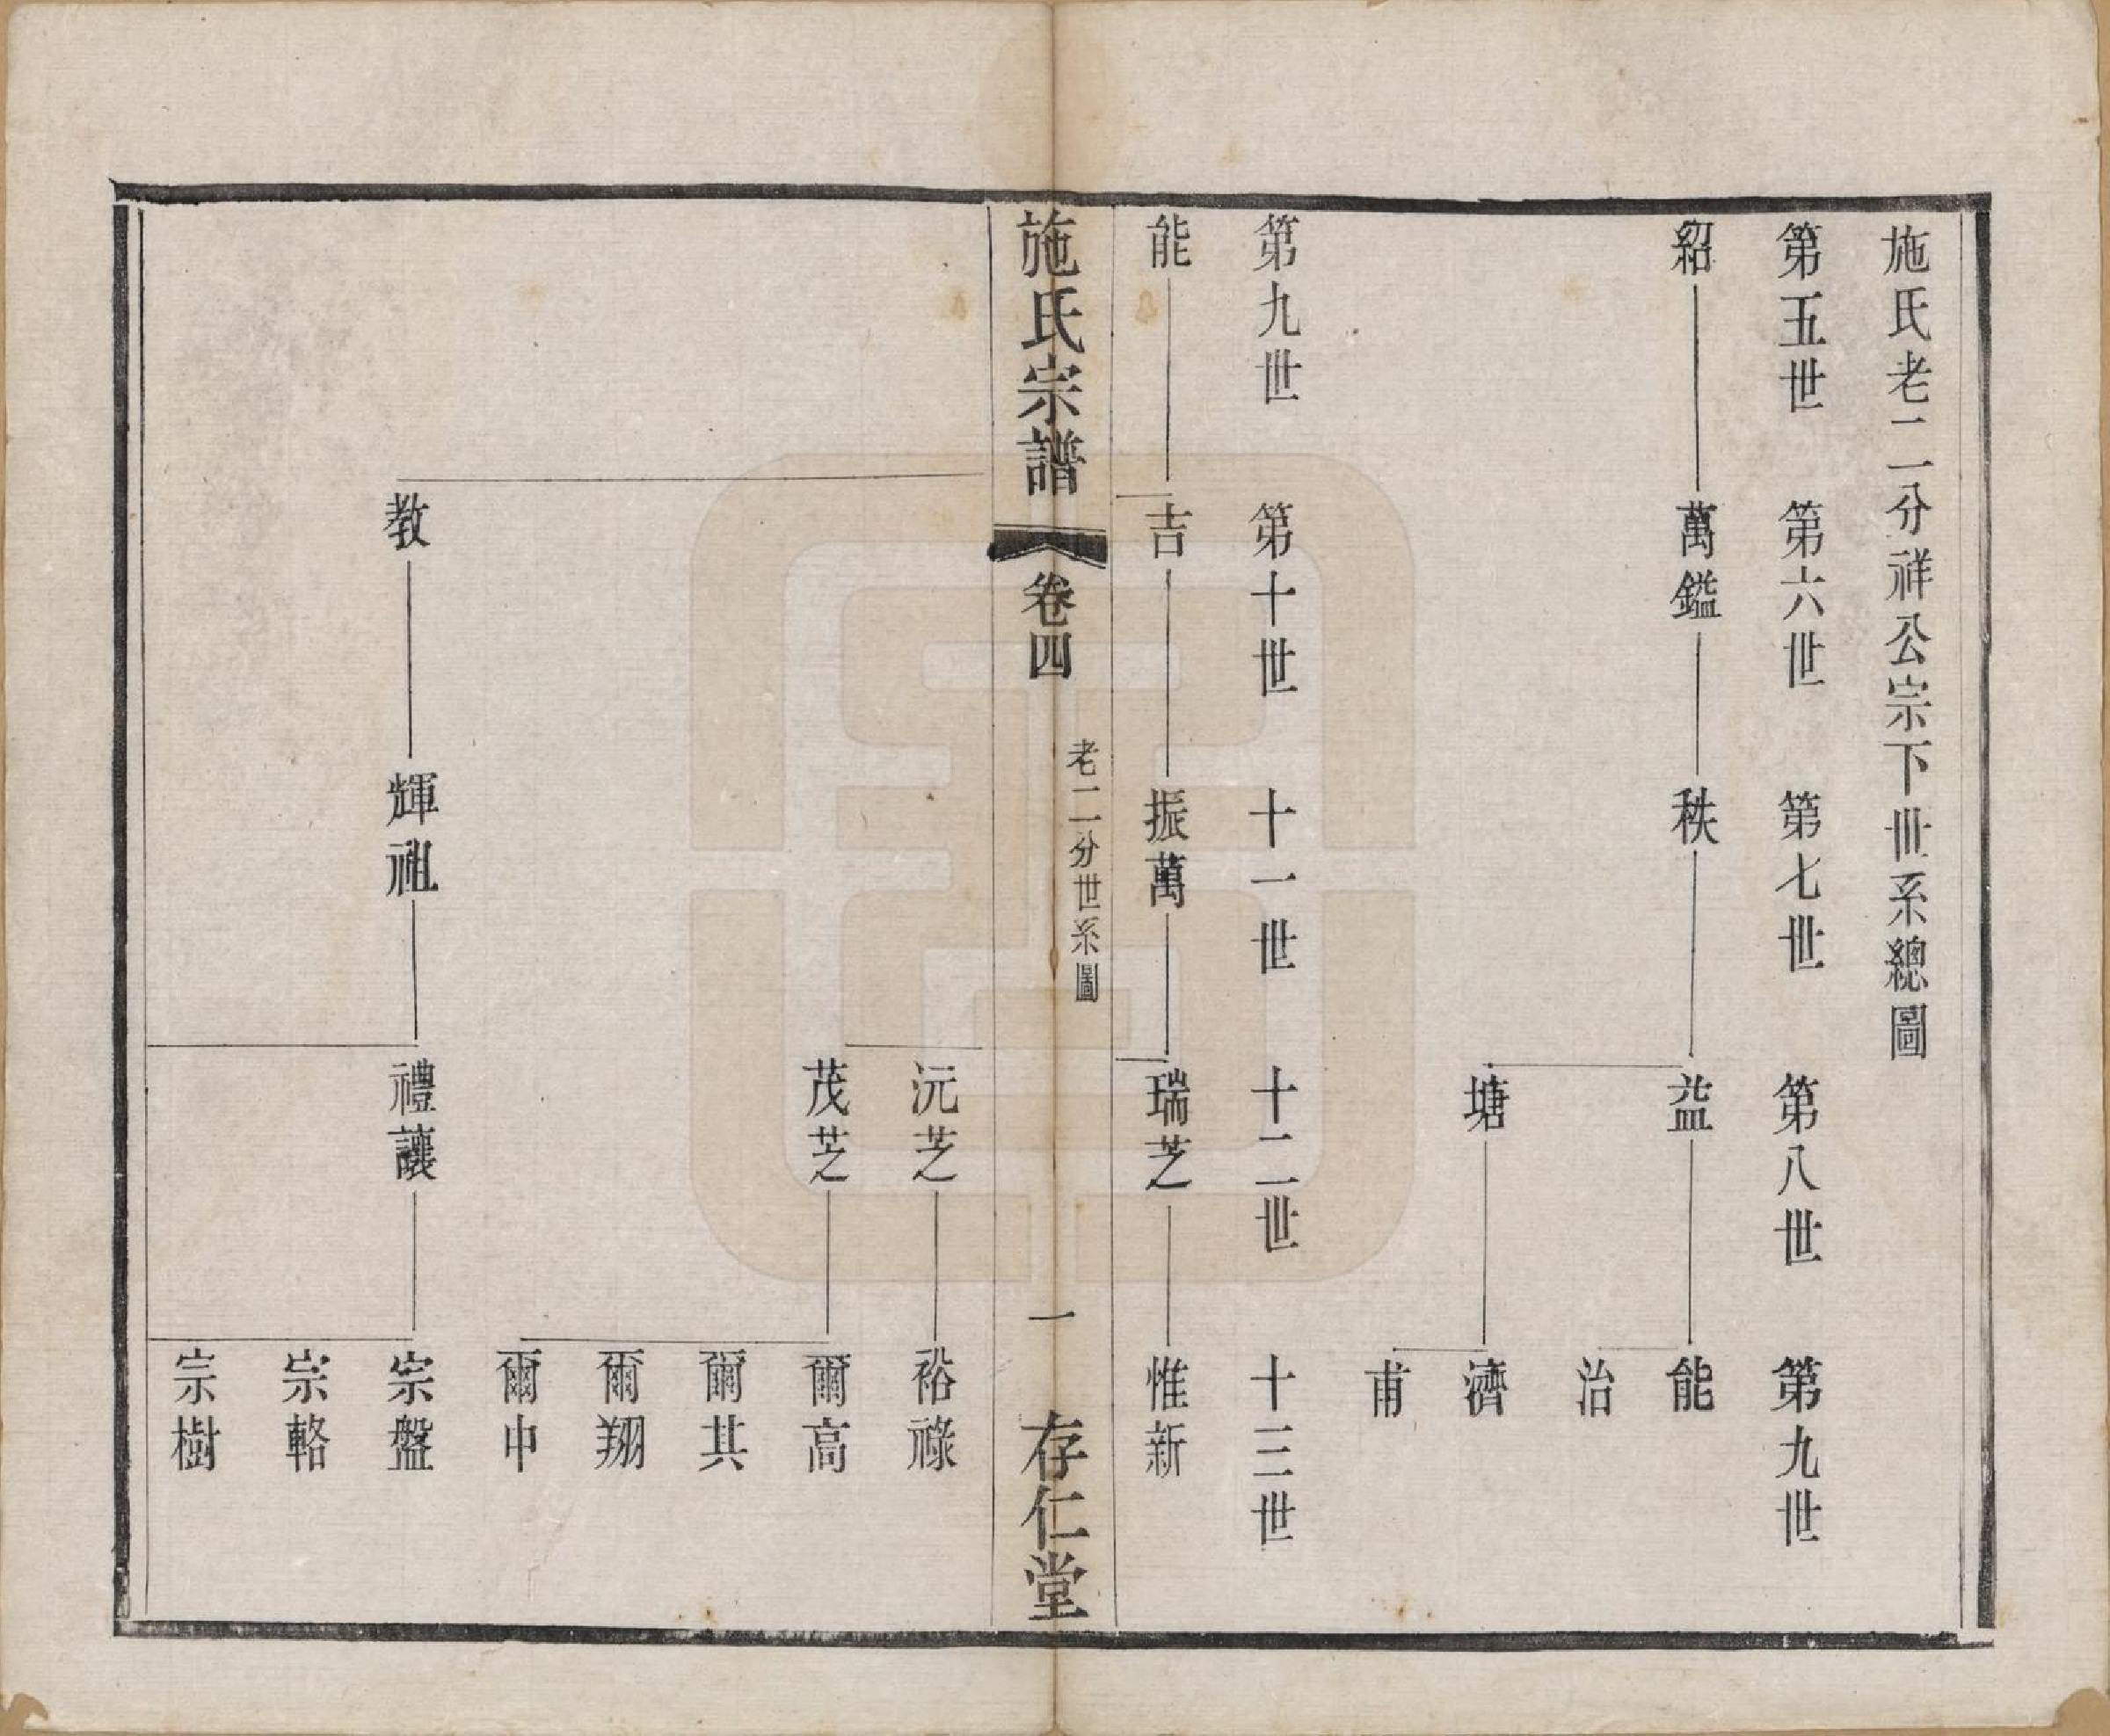 施氏老二分祥公宗下世系總圖
第五世 第六世 第七世 第八世 第九世
紹 萬鎰 秩 益 能
治
塘 濟
甫
第九世 第十世 十一世 十二世 十三世
能 吉 振萬 瑞芝 惟新
施氏宗譜 卷四 老二分世系圖 一 存仁堂
沅芝 裕祿
茂芝 爾高
爾其
爾翔
爾中
教 輝祖 禮讓 宗盤
宗輅
宗樹